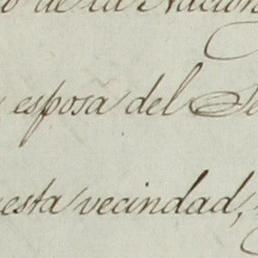 o de la Nacion
esposa del Se
esta vecindad,